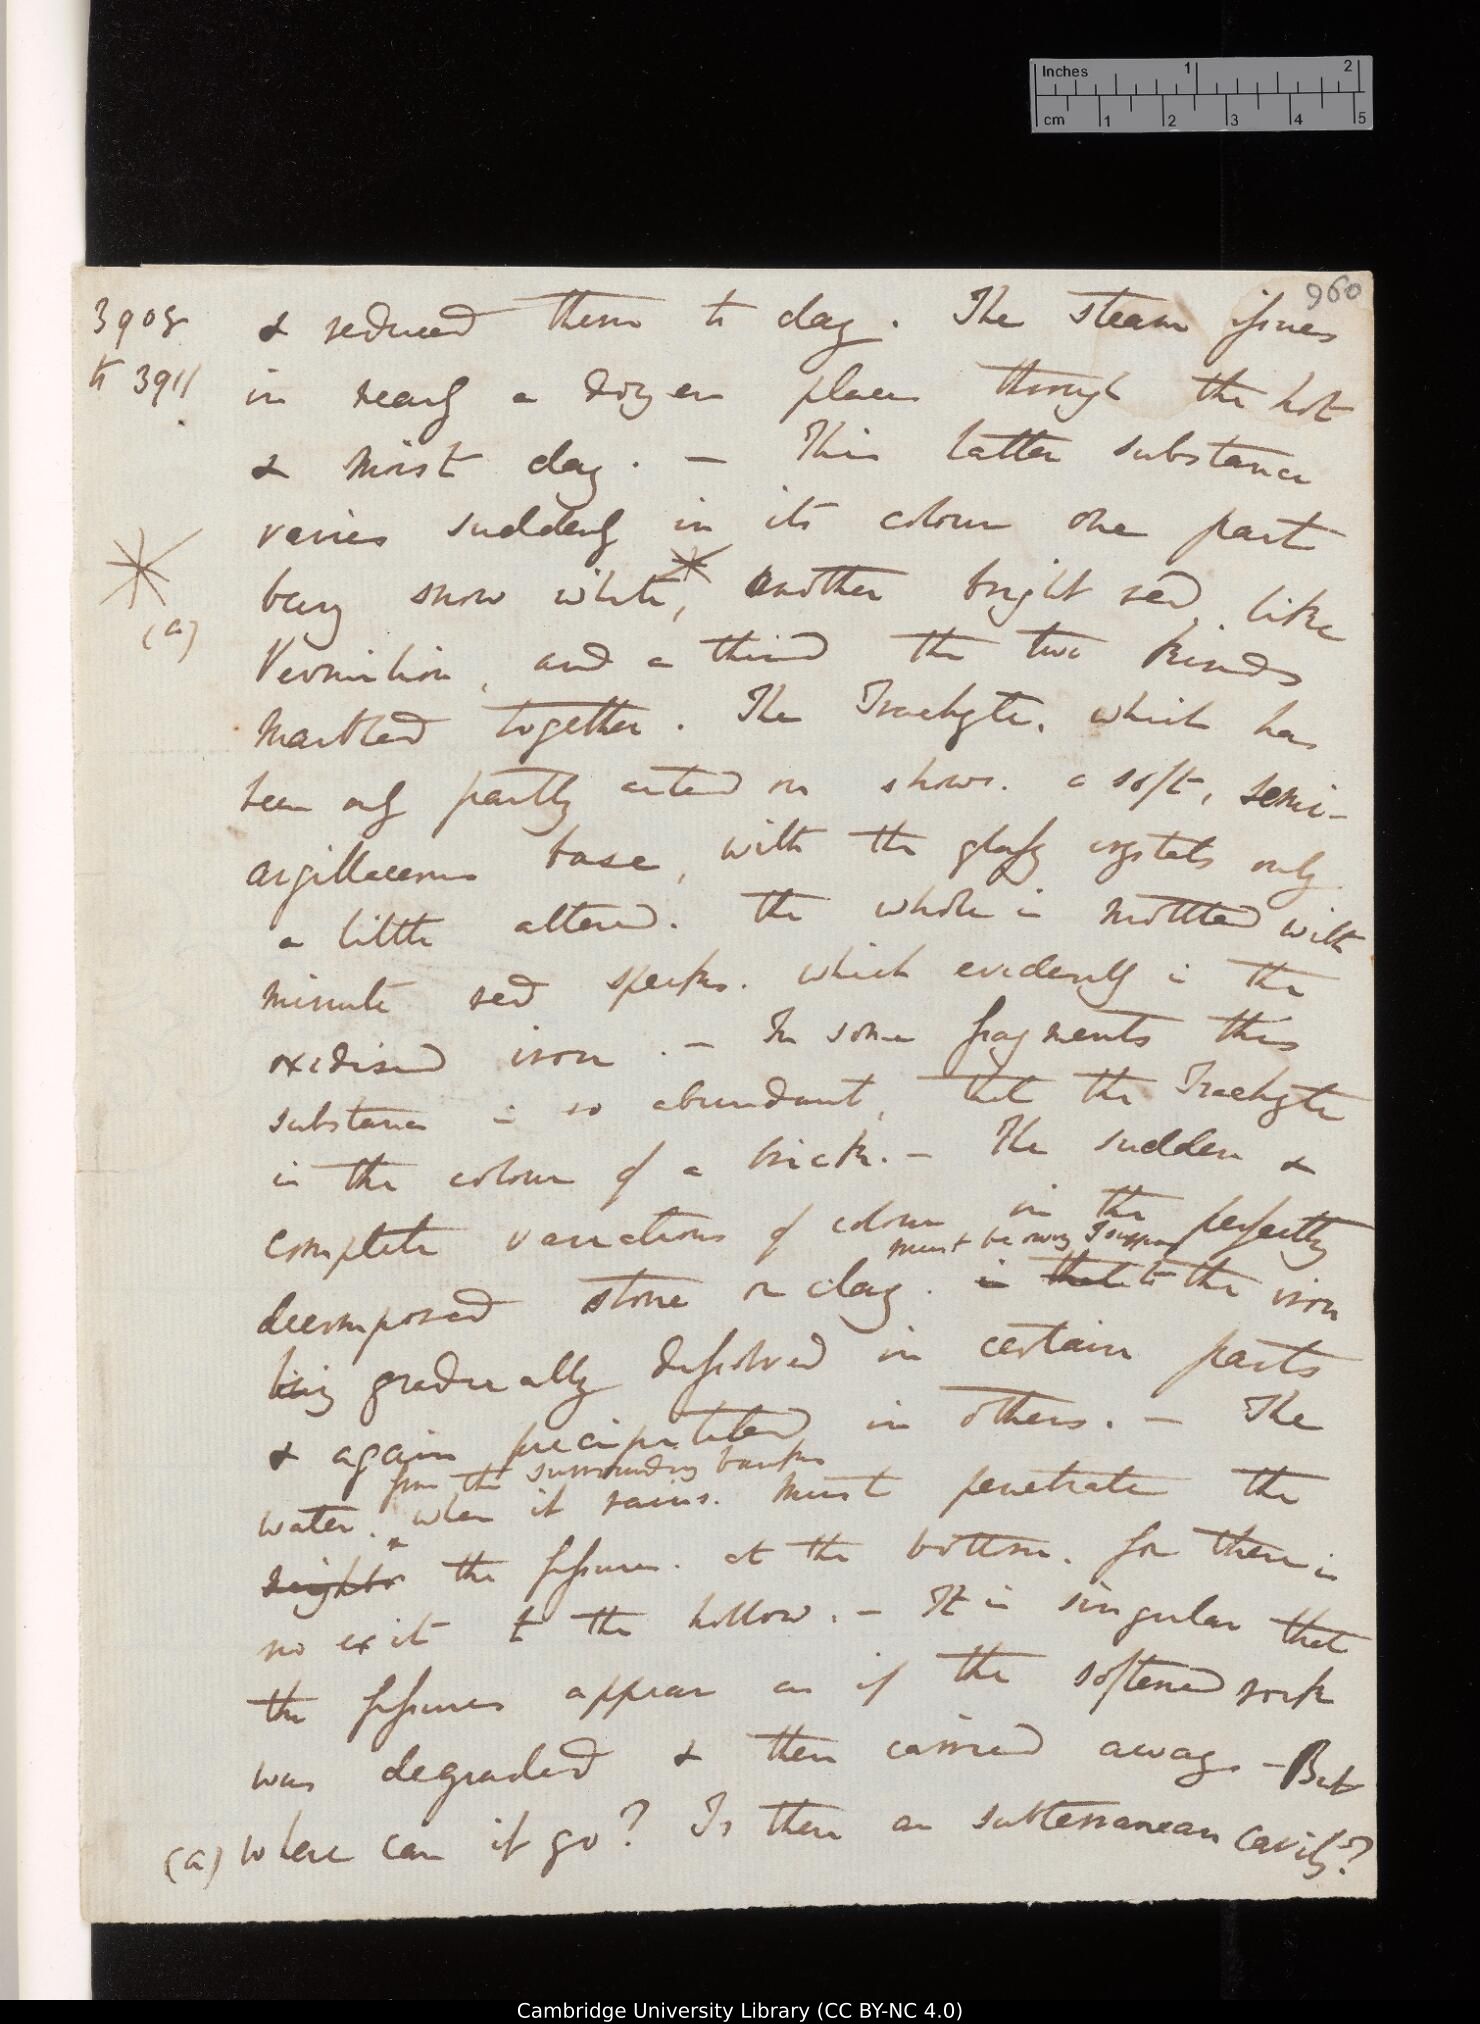 Inches 1 2
cm 1 2 3 4 5
960
3908 & reduced them to clay. The steam issues
to 3911 in nearly a dozen places through the hot
& moist clay. — This latter substance
varies suddenly in its colour one part
being snow white, another bright red, like
(a)
Vermilion, and a third the two kinds
marbled together. The Trachyte, which has
been only partly acted on shows. a soft, semi-
argillaceous base, with the glassy crystals only
a little altered. the whole is mottled with
minute red specks. which evidently is the
oxidised iron. — In some fragments this
substance is so abundant, that the Trachyte
is the colour of a brick. — The sudden &
complete variations of colour in the perfectly
must be owing I suppose
decomposed stone or clay. is that to the iron
being gradually dissolved in certain parts
& again precipitated in others. — The
from the surrounding banks
water. when it rains. must penetrate the
the fissures. at the bottom. for there is
no exit to the hollow. — It is singular that
the fissures appear as if the softened rock
was degraded & then carried away — But
(a) where can it go? Is there an subterranean cavity?
Cambridge University Library (CC BY-NC 4.0)